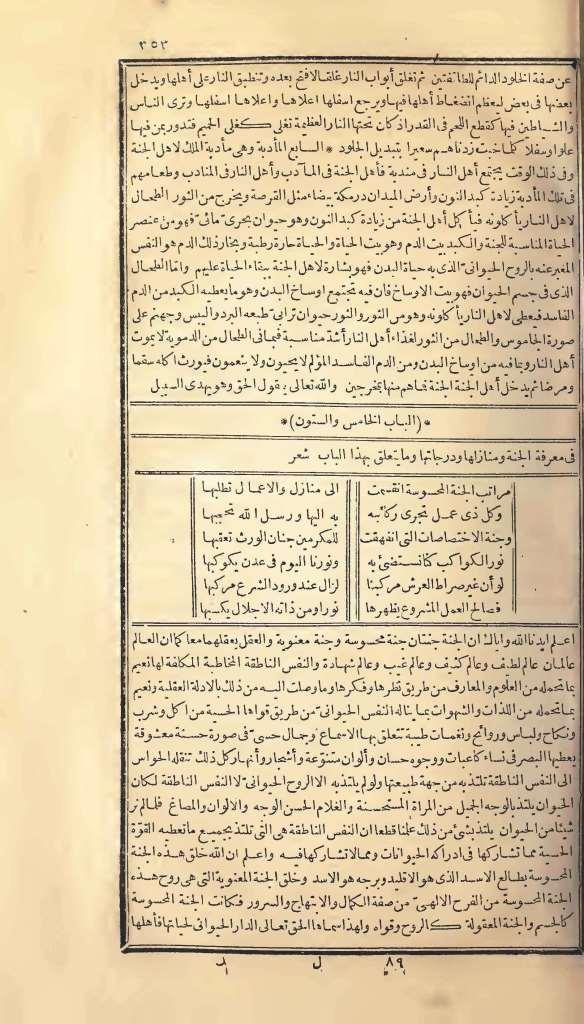 ٣٥٣
عن صفة الخلود الدائم للطائفتين ثم تغلق أبواب النار غلقا لا فتح بعده وتنطبق النار على أهلها ويدخل
بعضها في بعض ليعظم انضغاط أهلها فيها ويرجع اسفلها اعلاها واعلاها اسفلها وترى الناس
والشياطين فيها كقطع اللحم في القدر اذ كان تحتها النار العظيمة تغلى كغلى الحميم فتدور بمن فيها
علوا وسفلا كلما خبت زدناهم سعيرا بتبديل الجلود * السابع المأدبة وهي مأدبة الملك لاهل الجنة
وفي ذلك الوقت يجتمع أهل النار في مندبة فأهل الجنة في المآدب وأهل النار في المنادب وطعامهم
في تلك المأدبة زيادة كبد النون وأرض الميدان درمكة بيضاء مثل القرصة ويخرج من الثور الطحال
لاهل النار يأكلونه فيأكل أهل الجنة من زيادة كبد النون وهو حيوان بحرىّ مائىّ فهو من عنصر
الحياة المناسبة للجنة والكبد بيت الدم وهو بيت الحياة والحياة حارة رطبة وبخار ذلك الدم هو النفس
المعبر عنه بالروح الحيوانىّ الذى به حياة البدن فهو بشارة لاهل الجنة ببقاء الحياة عليهم وامّا الطحال
الذى في جسم الحيوان فهو بيت الاوساخ فان فيه تجتمع اوساخ البدن وهو ما يعطيه الكبد من الدم
الفاسد فيعطى لاهل النار يأكلونه وهو من الثور والثور حيوان ترابىّ طبعه البرد واليبس وجهنم على
صورة الجاموس والطحال من الثور لغذاء أهل النار أشدّ مناسبة فبما في الطحال من الدموية لا يموت
أهل النار وبما فيه من اوساخ البدن ومن الدم الفاسد المؤلم لا يحيون ولا ينعمون فيورث اكله سقما
ومرضا ثم يدخل أهل الجنة الجنة فما هم منها بمخرجين والله تعالى يقول الحق وهو يهدى السبيل
*(الباب الخامس والستون)*
في معرفة الجنة ومنازلها ودرجاتها وما يتعلق بهذا الباب شعر
مراتب الجنة المحسوسة انقسمت الى منازل والاعمال تطلبها
وكل ذى عمل تجرى ركائبه به اليها ورسل الله تحجبها
وجنة الاختصاصات التى انفهقت للمكرمين جنان الورث تعقبها
نور الكواكب كنا نستضئ به ونورنا اليوم في عدن يكوكبها
لو أن غير صراط العرش مركبنا لزال عند ورود الشرع مركبها
فصالح العمل المشروع يظهرها نورا ومن ذاته الاجلال يكسبها
اعلم ايدنا الله واياك ان الجنة جنتان جنة محسوسة وجنة معنوية والعقل يعقلهما معا كما ان العالم
عالمان عالم لطيف وعالم كثيف وعالم غيب وعالم شهادة والنفس الناطقة المخاطبة المكلفة لها نعيم
بما تحمله من العلوم والمعارف من طريق نظرها وفكرها وما وصلت اليه من ذلك بالادلة العقلية ونعيم
بما تحمله من اللذات والشهوات بما يناله النفس الحيوانىّ من طريق قواها الحسية من اكل وشرب
ونكاح ولباس وروائح ونغمات طيبة تتعلق بها الاسماع وجمال حسىّ في صورة حسنة معشوقة
يعطيها البصر في نساء كاعبات ووجوه حسان وألوان متنوّعة وأشجار وأنهار كل ذلك تنقله الحواس
الى النفس الناطقة فتلتذ به من جهة طبيعتها ولو لم يلتذ به الا الروح الحيوانىّ لا النفس الناطقة لكان
الحيوان يلتذ بالوجه الجميل من المرأة المستحسنة والغلام الحسن الوجه والالوان والمصاغ فلما لم نر
شيئا من الحيوان يلتذ بشئ من ذلك علمنا قطعا ان النفس الناطقة هي التى تلتذ بجميع ما تعطيه القوّة
الحسية مما تشاركها في ادراكه الحيوانات ومما لا تشاركها فيه واعلم ان الله خلق هذه الجنة
المحسوسة بطالع الاسد الذى هو الاقليد وبرجه هو الاسد وخلق الجنة المعنوية التى هي روح هذه
الجنة المحسوسة من الفرح الالهىّ من صفة الكمال والابتهاج والسرور فكانت الجنة المحسوسة
كالجسم والجنة المعقولة كالروح وقواه ولهذا سماها الحق تعالى الدار الحيوان لحياتها فأهلها
٨٩ ل